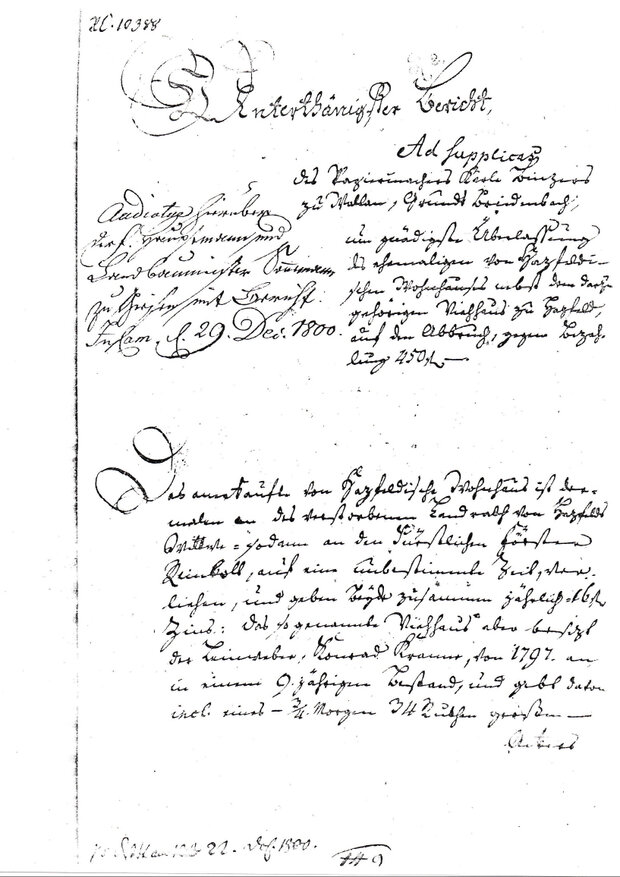 RC. 10388
Unterthänigster Bericht,
Ad Supplicam
des Papiermachers Carle Binzers
zu Wallau, Grunds Breidenbach,
um gnädigste Überlassung
des ehemaligen von Hazfeldi-
schen Wohnhauses nebst dem darzu
gehörigen Viehhaus zu Hazfeld,
auf den Abbruch, gegen Bezah-
lung 450 f.
hierüber
Hauptmann und
Landbaumeister Sonnemann
zu Giesen mit Bericht.
In Cam. d. 29. Dec. 1800.
Das erkaufte von Hazfeldische Wohnhaus ist der-
malen an des verstorbenen Landrath von Hazfelds
Wittwe = sodann an den Fürstlichen Förster
Reinholt, auf eine unbestimmte Zeit, ver-
liehen, und geben beyde zusammen jährlich 16 f.
Zins: das so genannte Viehhaus aber besizt
der Leinweber, Konrad Kramer, von 1797. an
in einem 9. jährigen Bestand, und gebt davon
incl. eines - 3/4. Morgen 34 Ruthen grosen
Ackers
22. Dec. 1800.